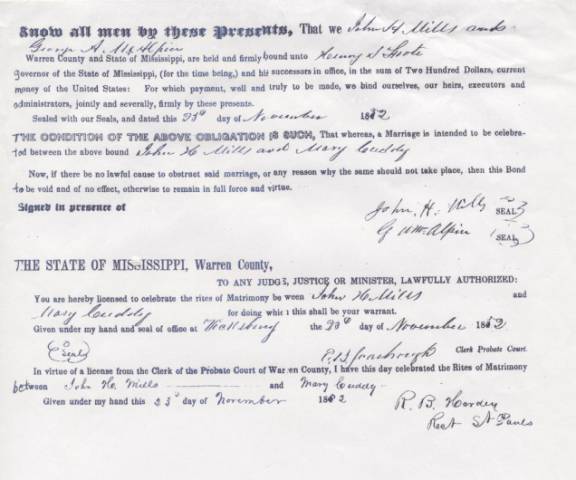 Know all men by these Presents, That we John H Mills and
George A. McAlpin
Warren County and State of Mississippi, are held and firmly bound unto Henry S Foote
governor of the State of Mississippi, (for the time being,) and his successors in office, in the sum of Two Hundred Dollars, current
money of the United States: For which payment, well and truly to be made, we bind ourselves, our heirs, executors and
administrators, jointly and severally, firmly by these presents.
Sealed with our Seals, and dated this 23d day of November 1852
THE CONDITION OF THE ABOVE OBLIGATION IS SUCH, That whereas, a Marriage is intended to be celebra-
ted between the above bound John H. Mills and Mary Cuddy
Now, if there be no lawful cause to obstruct said marriage, or any reason why the same should not take place, then this Bond
to be void and of no effect, otherwise to remain in full force and virtue.
Signed in presence of
John. H. Mills SEAL
G A McAlpin SEAL
THE STATE OF MISSISSIPPI, Warren County,
TO ANY JUDGE, JUSTICE OR MINISTER, LAWFULLY AUTHORIZED:
You are hereby licensed to celebrate the rites of Matrimony be ween John H. Mills and
Mary Cuddy for doing whic i this shall be your warrant.
Given under my hand and seal of office at Vicksburg the 23d day of November 1852
Seal Clerk Probate Court.
In virtue of a license from the Clerk of the Probate Court of Warren County, I have this day celebrated the Rites of Matrimony
between John H. Mills and Mary Cuddy
Given under my hand this 23d day of November 1852
R. B.
Rect St Pauls